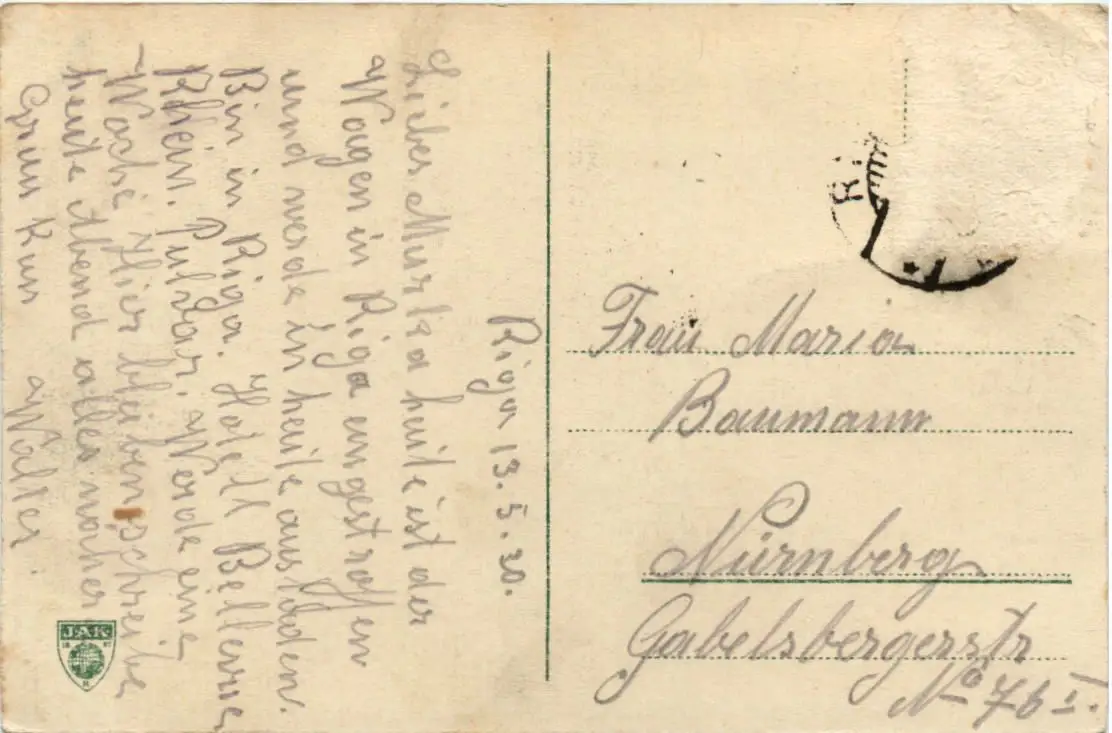 Riga 13.5.30.
Lieber Murka heute ist der
Wagen in Riga eingestroffen
und werde in heute ausladen.
Bin in Riga. Hotell Bellevue
Rhein. Werde eine
Woche Hier bleiben, schreibe
heute Abend alles nacher
Gruss Kuss Walter.
Frau Maria
Baumann
Nürnberg
Gabelsbergerstr
No 76 I.
JAK